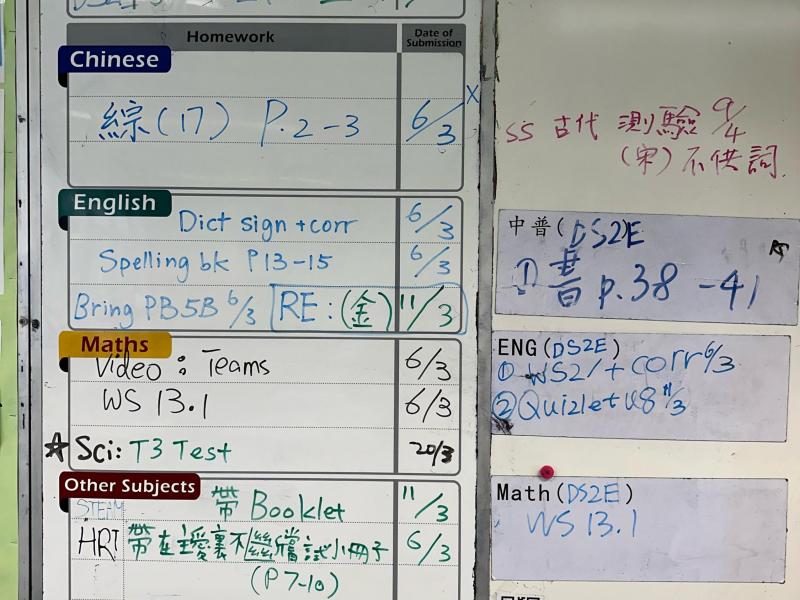 Homework Date of Submission
Chinese
綜(17) P.2-3 6/3 X
English
Dict sign + corr 6/3
Spelling bk P13-15 6/3
Bring PB5B 6/3 RE:(金) 11/3
Maths
Video: Teams 6/3
WS 13.1 6/3
☆ Sci: T3 Test 20/3
Other Subjects
STEAM 帶 Booklet 11/3
HRT 帶在 裏不 試小冊子 6/3
(P7-10)
SS 古代 測驗 9/4
(宋)不供詞
中普(DS2E)
① 書 p.38-41
ENG(DS2E)
① WS21 + corr 6/3
② Quizlet U8 11/3
Math(DS2E)
WS 13.1